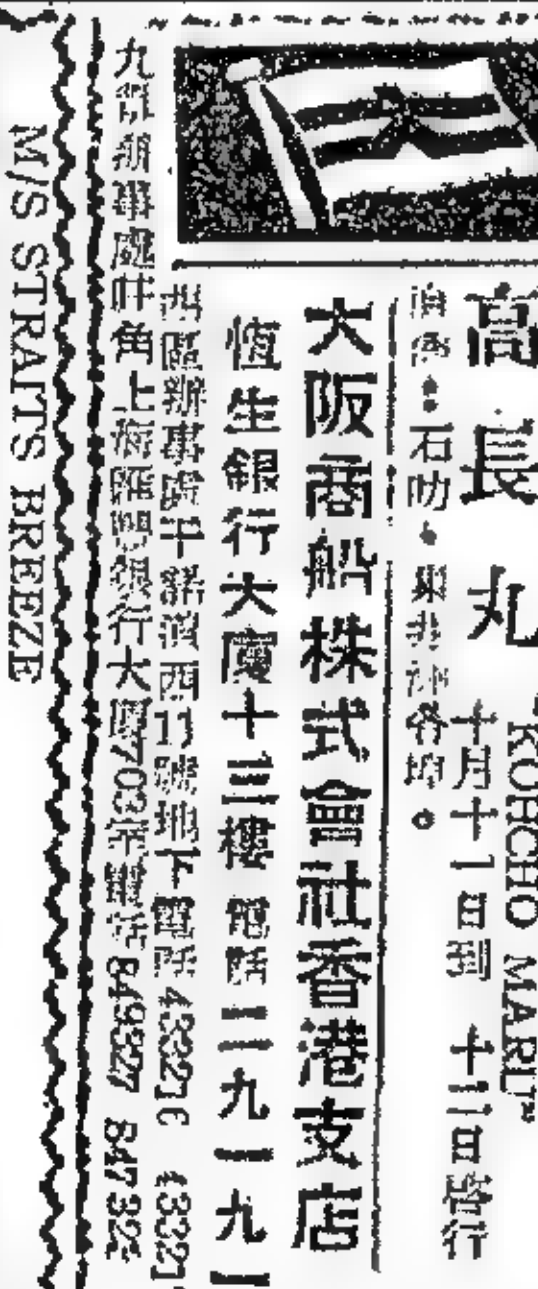 高長丸
"KOHCHO MARU"
十月十一日到 十二日啟行
石叻、東非洲各埠。
大阪商船株式會社香港支店
恆生銀行大廈十三樓 電話二九一九一
西區辦事處干諾道西11號地下電話
九龍辦事處旺角上海滙豐銀行大廈703室電話849327
M/S STRAITS BREEZE